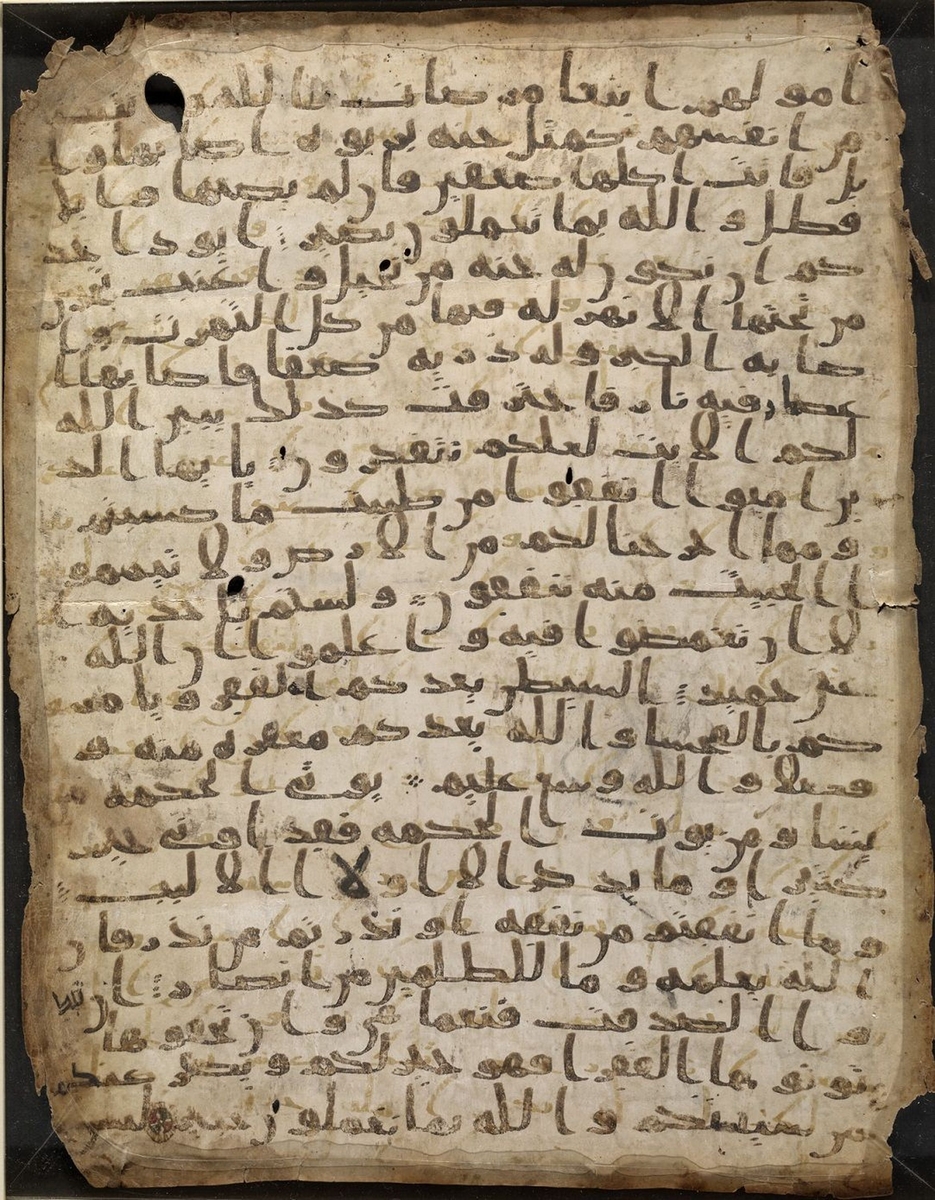 امولهم ابتغا مرضات الله وتثبيتا
من انفسهم كمثل جنه بربوه اصابها وا
بل فاتت اكلها ضعفين فان لم يصبها وابل
فطل والله بما تعملون بصير ايود احد
كم ان تكون له جنه من نخيل واعنب تجري
من تحتها الانهر له فيها من كل الثمرت وا
صابه الكبر وله ذريه ضعفا فاصابها ا
عصار فيه نار فاحترقت كذلك يبين الله
لكم الايت لعلكم تتفكرون يايها الذ
ين امنوا انفقوا من طيبت ما كسبتم
ومما اخرجنا لكم من الارض ولا تيمموا
الخبيث منه تنفقون ولستم باخذيه ا
لا ان تغمضوا فيه واعلموا ان الله
غني حميد الشيطن يعدكم الفقر ويامر
كم بالفحشا والله يعدكم مغفره منه و
فضلا والله وسع عليم يوتي الحكمه من
يشا ومن يوت الحكمه فقد اوتي خيرا
كثيرا وما يذكر الا اولا الالبب
وما انفقتم من نفقه او نذرتم من نذر فان
الله يعلمه وما للظلمين من انصار ان تبد
وا الصدقت فنعما هي وان تخفوها
وتوتوها الفقرا فهو خير لكم ويكفر عنكم
من سيتكم والله بما تعملون خبير ليس